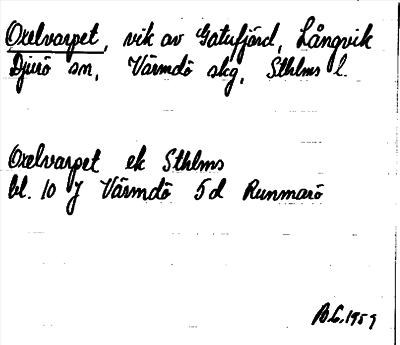 Oxelvarpet, vik av Gatufjärd, Långvik
Djurö sn, Värmdö skg, Sthlms l.
Oxelvarpet ek Sthlms
bl. 10 J Värmdö 5d Runmarö
B.G. 1959